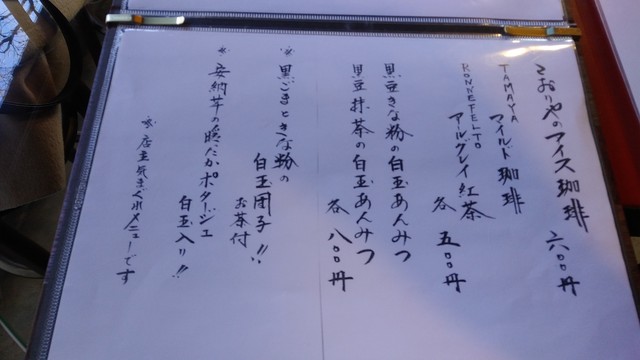 こおりやのアイス珈琲 六〇〇円
TAMAYA
マイルド珈琲
RONNEFELTO
アールグレイ紅茶
各 五〇〇円
黒豆きな粉の白玉あんみつ
黒豆抹茶の白玉あんみつ
各 八〇〇円
※黒ごまときな粉の
白玉団子!!
お茶付
※安納芋の暖たかポタージュ
白玉入り!!
※店主気まぐれメニューです